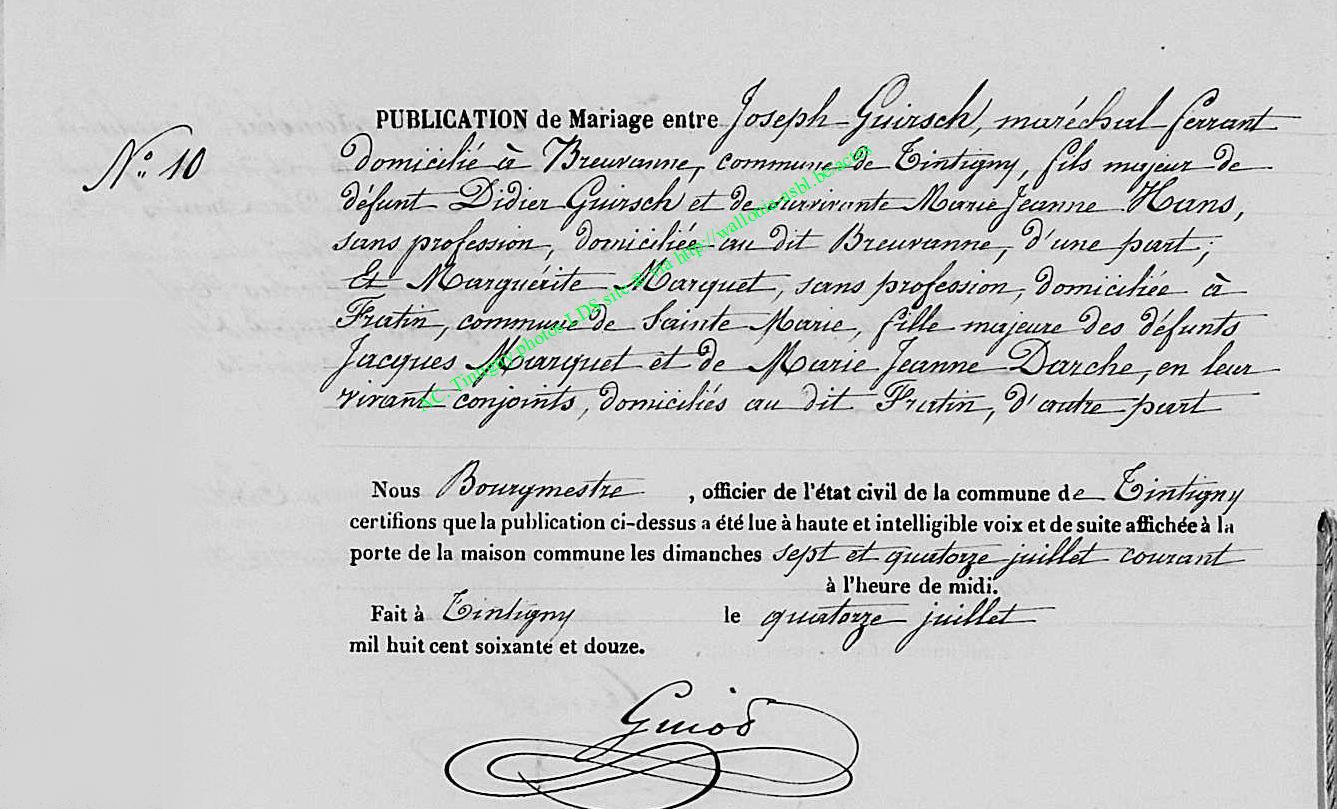 PUBLICATION de Mariage entre Joseph Guirsch, maréchal ferrant
N° 10
domicilié à Breuvanne, commune de Tintigny, fils majeur de
défunt Didier Guirsch et de survivante Marie Jeanne Hans,
sans profession, domiciliée au dit Breuvanne, d'une part;
Et Marguérite Marquet, sans profession, domiciliée à
Fratin, commune de Sainte Marie, fille majeure des défunts
Jacques Marquet et de Marie Jeanne Darche, en leur
vivant conjoints, domiciliés au dit Fratin, d'autre part
AC. Tintigny photos LDS site @ via http://wallonia-asbl.be:actes
Nous Bourgmestre , officier de l'état civil de la commune de Tintigny
certifions que la publication ci-dessus a été lue à haute et intelligible voix et de suite affichée à la
porte de la maison commune les dimanches sept et quatorze juillet courant
à l'heure de midi.
Fait à Tintigny le quatorze juillet
mil huit cent soixante et douze.